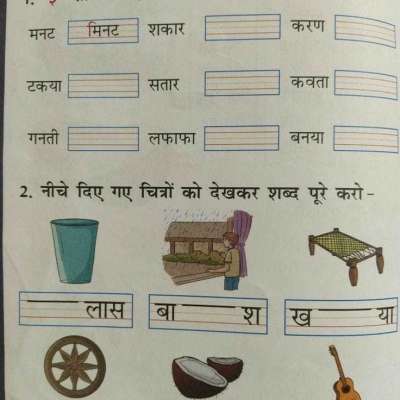 मनट मिनट शकार करण
टकया सतार कवता
गनती लफाफा बनया
2. नीचे दिए गए चित्रों को देखकर शब्द पूरे करो -
लास बा श ख या